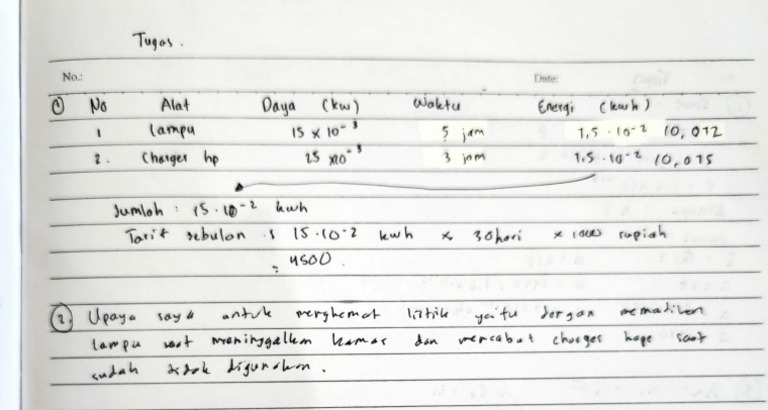 Tugas.
No.: Date:
① No Alat Daya (kw) Waktu Energi (kwh)
1 lampu 15 x 10⁻³ 5 jam 7,5 · 10⁻² / 0,072
2. Charger hp 25 x10⁻³ 3 jam 7.5 · 10⁻² / 0,075
Jumlah : 15 · 10⁻² kwh
Tarif sebulan : 15 · 10⁻² kwh x 30 hari x 1000 rupiah
= 4500.
② Upaya saya untuk menghemat listrik yaitu dengan mematikan
lampu saat meninggalkan kamar dan mencabut charger hape saat
sudah tidak digunakan.